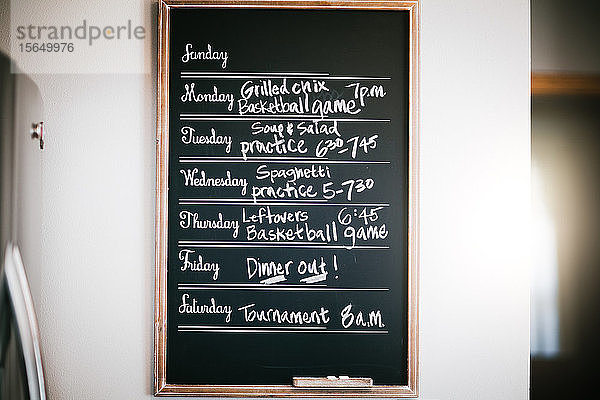 15649976
plainpicture
Sunday
Monday Grilled chix 7p.m
Basketball game
Tuesday Soup & Salad
practice 6³⁰-7⁴⁵
Wednesday Spaghetti
practice 5-7³⁰
Thursday Leftovers 6:45
Basketball game
Friday Dinner out !
Saturday Tournament 8a.m.